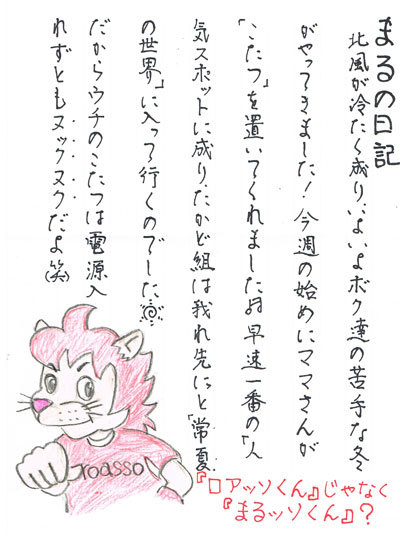 まるの日記
北風が冷たく成り、いよいよボク達の苦手な冬
がやってきました!今週の始めにママさんが
「こたつ」を置いてくれました 早速一番の「人
気スポットに成り、たかど組は我れ先にっと「常夏
の世界」に入って行くのでした
だからウチのこたつは電源入
れずともヌックヌクだよ(笑)
roasso
『ロアッソくん』じゃなく
『まるッソくん』?